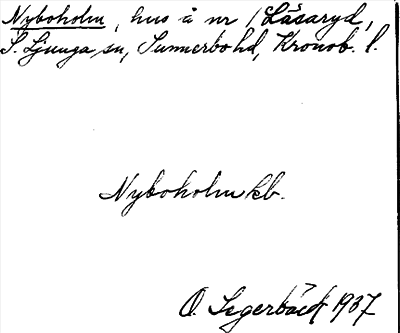 Nyboholm, hus å nr 1 Låsaryd,
S. Ljunga sn, Sunnerbo hd, Kronob. l.
Nyboholm kb.
O. Segerbäck 1937